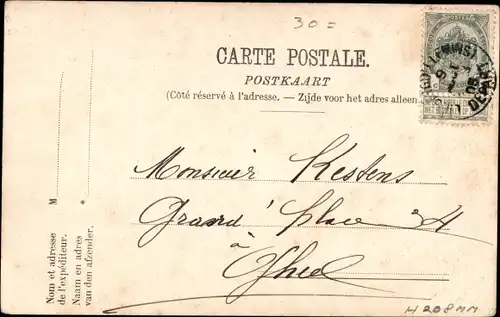 30=
CARTE POSTALE.
POSTKAART
(Côté réservé à l'adresse. — Zijde voor het adres alleen
M
*
Nom et adresse
de l'expéditeur.
Naam en adres
van den afzender.
(GUILLEMINS)
DEPART
Monsieur Kestens
Grand' Place 24
à
Gheel
H208MM